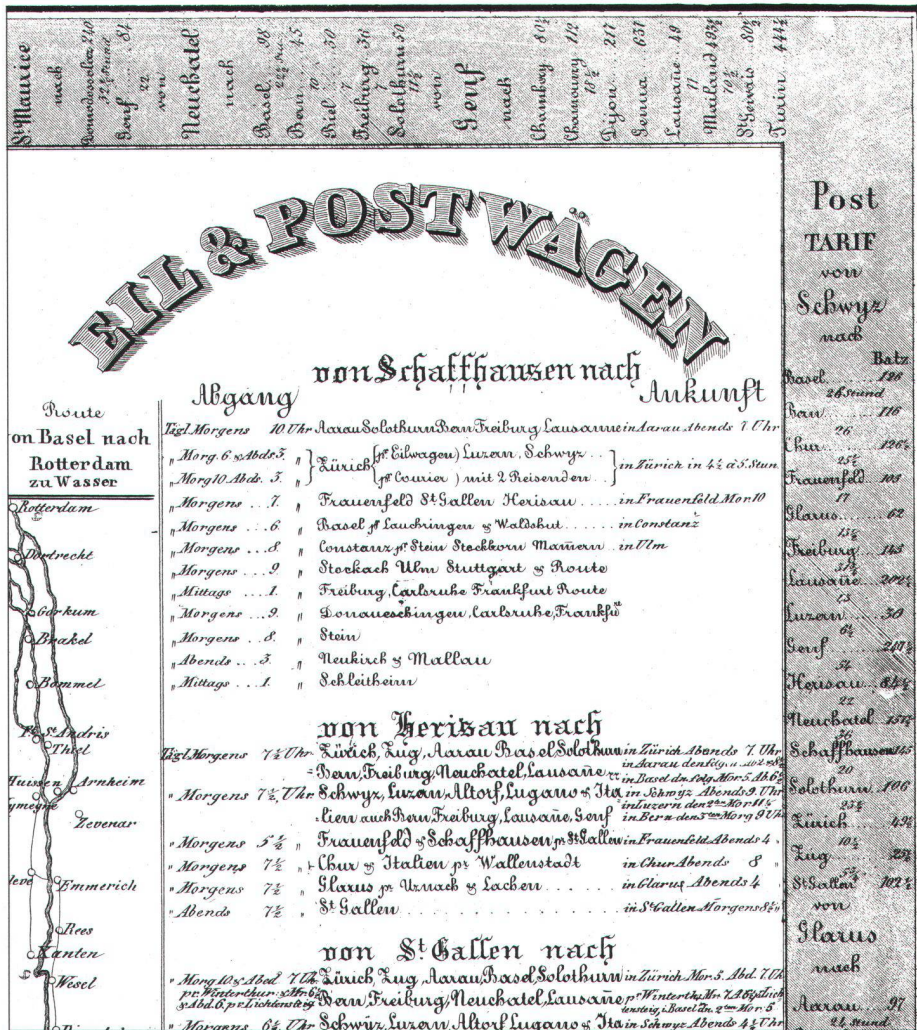 St Maurice
nach
Domodossola 240
32 3/4 Stund
Genf 84
22
von
Neuchatel
nach
Basel 98
Bern 45
10
Biel 30
7
Freiburg 36
7
Solothurn 50
11 1/2
von
Genf
nach
Chambery 60 1/2
Chamouny 112
18 1/2
Dijon 217
Genua 631
Lausañe 49
11
Mailand 493 1/2
70 1/2
St Gervais 80 1/2
Turin 444 1/2
EIL & POSTWÄGEN
von Schaffhausen nach
Abgang Ankunft
Tägl. Morgens 10 Uhr Aarau Solothurn Bern Freiburg Lausanne in Aarau Abends 7 Uhr
„ Morg. 6 & Abds 3. „ Zürich (pr Eilwagen) Luzern, Schwyz in Zürich in 4 1/2 à 5 Stun
„ Morg 10 Abds. 3. „ (pr Courier) mit 2 Reisenden
„ Morgens 7. „ Frauenfeld St Gallen Herisau in Frauenfeld Mor 10
„ Morgens 6 „ Basel pr Lauchringen & Waldshut in Constanz
„ Morgens 8. „ Constanz pr Stein Steckborn Mamern in Ulm
„ Morgens 9. „ Stockach Ulm Stuttgart & Route
„ Mittags 1. „ Freiburg, Carlsruhe Frankfurt Route
„ Morgens 9. „ Donaueschingen, Carlsruhe, Frankfu
„ Morgens 8. „ Stein
„ Abends 3. „ Neukirch & Mallau
„ Mittags 1. „ Schleitheim
von Herisau nach
Tägl. Morgens 7 1/2 Uhr Zürich, Zug, Aarau Basel Solothurn in Zürich Abends 7. Uhr
Bern, Freiburg, Neuchatel, Lausañe in Aarau den folg.
in Basel dn folg Mor 5 Ab 6 1/2
„ Morgens 7 1/2 Uhr Schwyz, Luzern, Altorf, Lugano & Ita in Schwyz Abends 9. Uhr
in Luzern den 2ten Mor 11 1/2
lien auch Bern Freiburg, Lausañe, Genf in Bern den 3ten Morg 9 Uhr
„ Morgens 5 1/2 „ Frauenfeld & Schaffhausen pr St Gallen in Frauenfeld Abends 4 „
„ Morgens 7 1/2 „ Chur & Italien pr Wallenstadt in Chur Abends 8 „
„ Morgens 7 1/2 „ Glarus pr Uznach & Lachen in Glarus Abends 4
„ Abends 7 1/2 „ St Gallen in St Gallen Morgens 8 1/2 „
von St Gallen nach
„ Morg 10 & Abed 7 Uh Zürich, Zug, Aarau, Basel, Solothurn in Zürich Mor. 5. Abd. 7 Uh
pr Winterthur & Mr 6
& Abd. 6. pr Lichtensteig Bern, Freiburg, Neuchatel, Lausañe, pr Winterth. Mr. 7. A 6 pr Lich
tensteig, i. Basel dn 2ten Mor 5
„ Morgens 6 1/2 Uhr Schwyz, Luzern, Altorf Lugano & Ita in Schwyz Abends 4 1/2 Uhr
Route
on Basel nach
Rotterdam
zu Wasser
Rotterdam
Dortrecht
Gorkum
Brakel
Bommel
St Andris
Thiel
Huissen
Arnheim
ymegne
Zevenar
leve
Emmerich
Rees
Xanten
Wesel
Post
TARIF
von
Schwyz
nach
Batz.
Basel 126
26 Stund
Bern 116
26
Chur 126 1/2
25 1/2
Frauenfeld 103
17
Glarus 62
13 1/2
Freiburg 143
31 1/2
Lausañe 202 1/2
43
Luzern 30
6 1/2
Genf 248 1/2
54
Herisau 84 1/2
22
Neuchatel 157 1/2
36
Schaffhausen 145
20
Solothurn 106
23 1/2
Zürich 49 1/2
10 1/2
Zug 25 1/2
5 1/2
St Gallen 102 1/2
von
Glarus
nach
Aarau 97
24 Stund